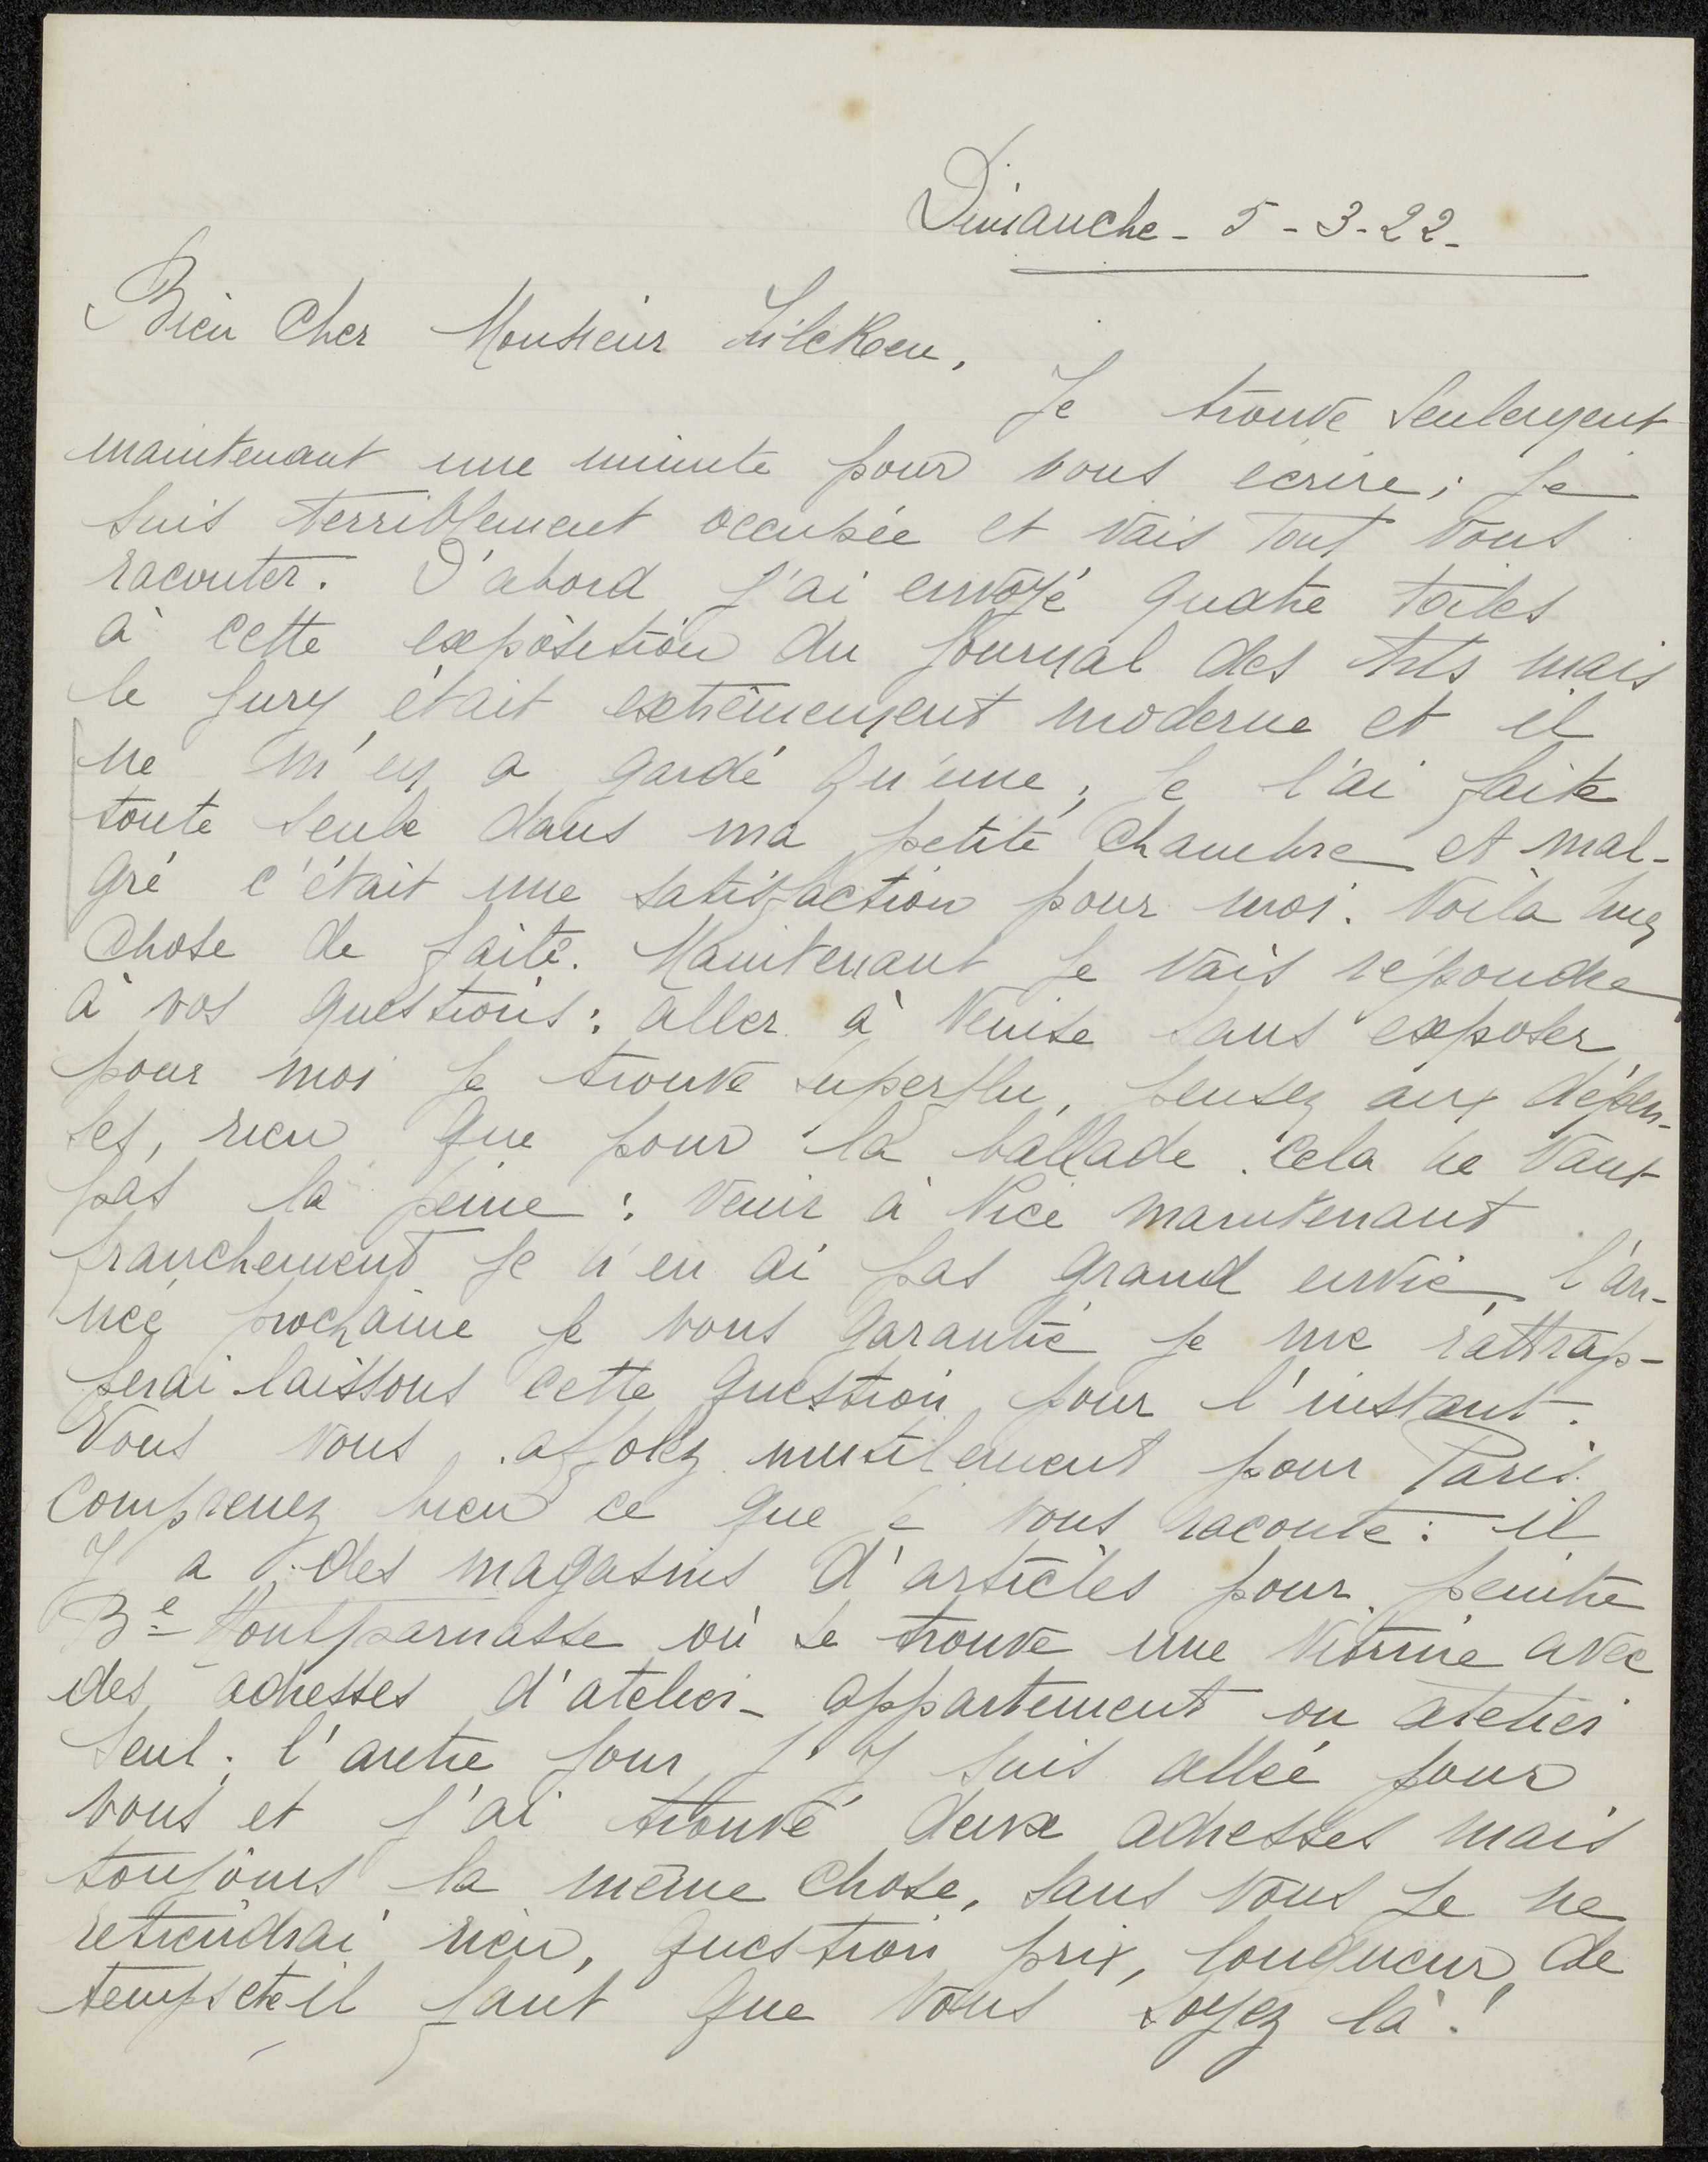 Dimanche - 5 - 3 - 22 -
Bien Cher Monsieur Zilcken,
Je trouve seulement
maintenant une minute pour vous ecrire; je
suis terriblement occupée et vais tout vous
raconter. D'abord j'ai envoyé quatre toiles
à cette exposition du Journal des Arts mais
le jury était extrêmement moderne et il
ne m'en a gardé qu'une; je l'ai faite
toute seule dans ma petite chambre et mal-
gré c'était une satisfaction pour moi. Voila une
chose de faite. Maintenant je vais répondre
à vos questions: aller à Venise sans exposer
pour moi je trouve superflu, pensez aux dépen-
ses, rien que pour la ballade. Cela ne vaut
pas la peine: venir à Nice maintenant
franchement je n'en ai pas grand envie l'an-
née prochaine je vous garantie je me rattrap-
perai laissons cette question pour l'instant.
Vous vous affolez inutilement pour Paris
comprenez bien ce que je vous raconte: il
y a des magasins d'articles pour peintre
Be Montparnasse où se trouve une vitrine avec
des adresses d'atelier - appartement ou atelier
seul; l'autre jour j'y suis allée pour
vous et j'ai trouvé deux adresses mais
toujours la même chose, sans vous je ne
retiendrai rien, question prix, longueur de
temps etc il faut que vous soyez là!